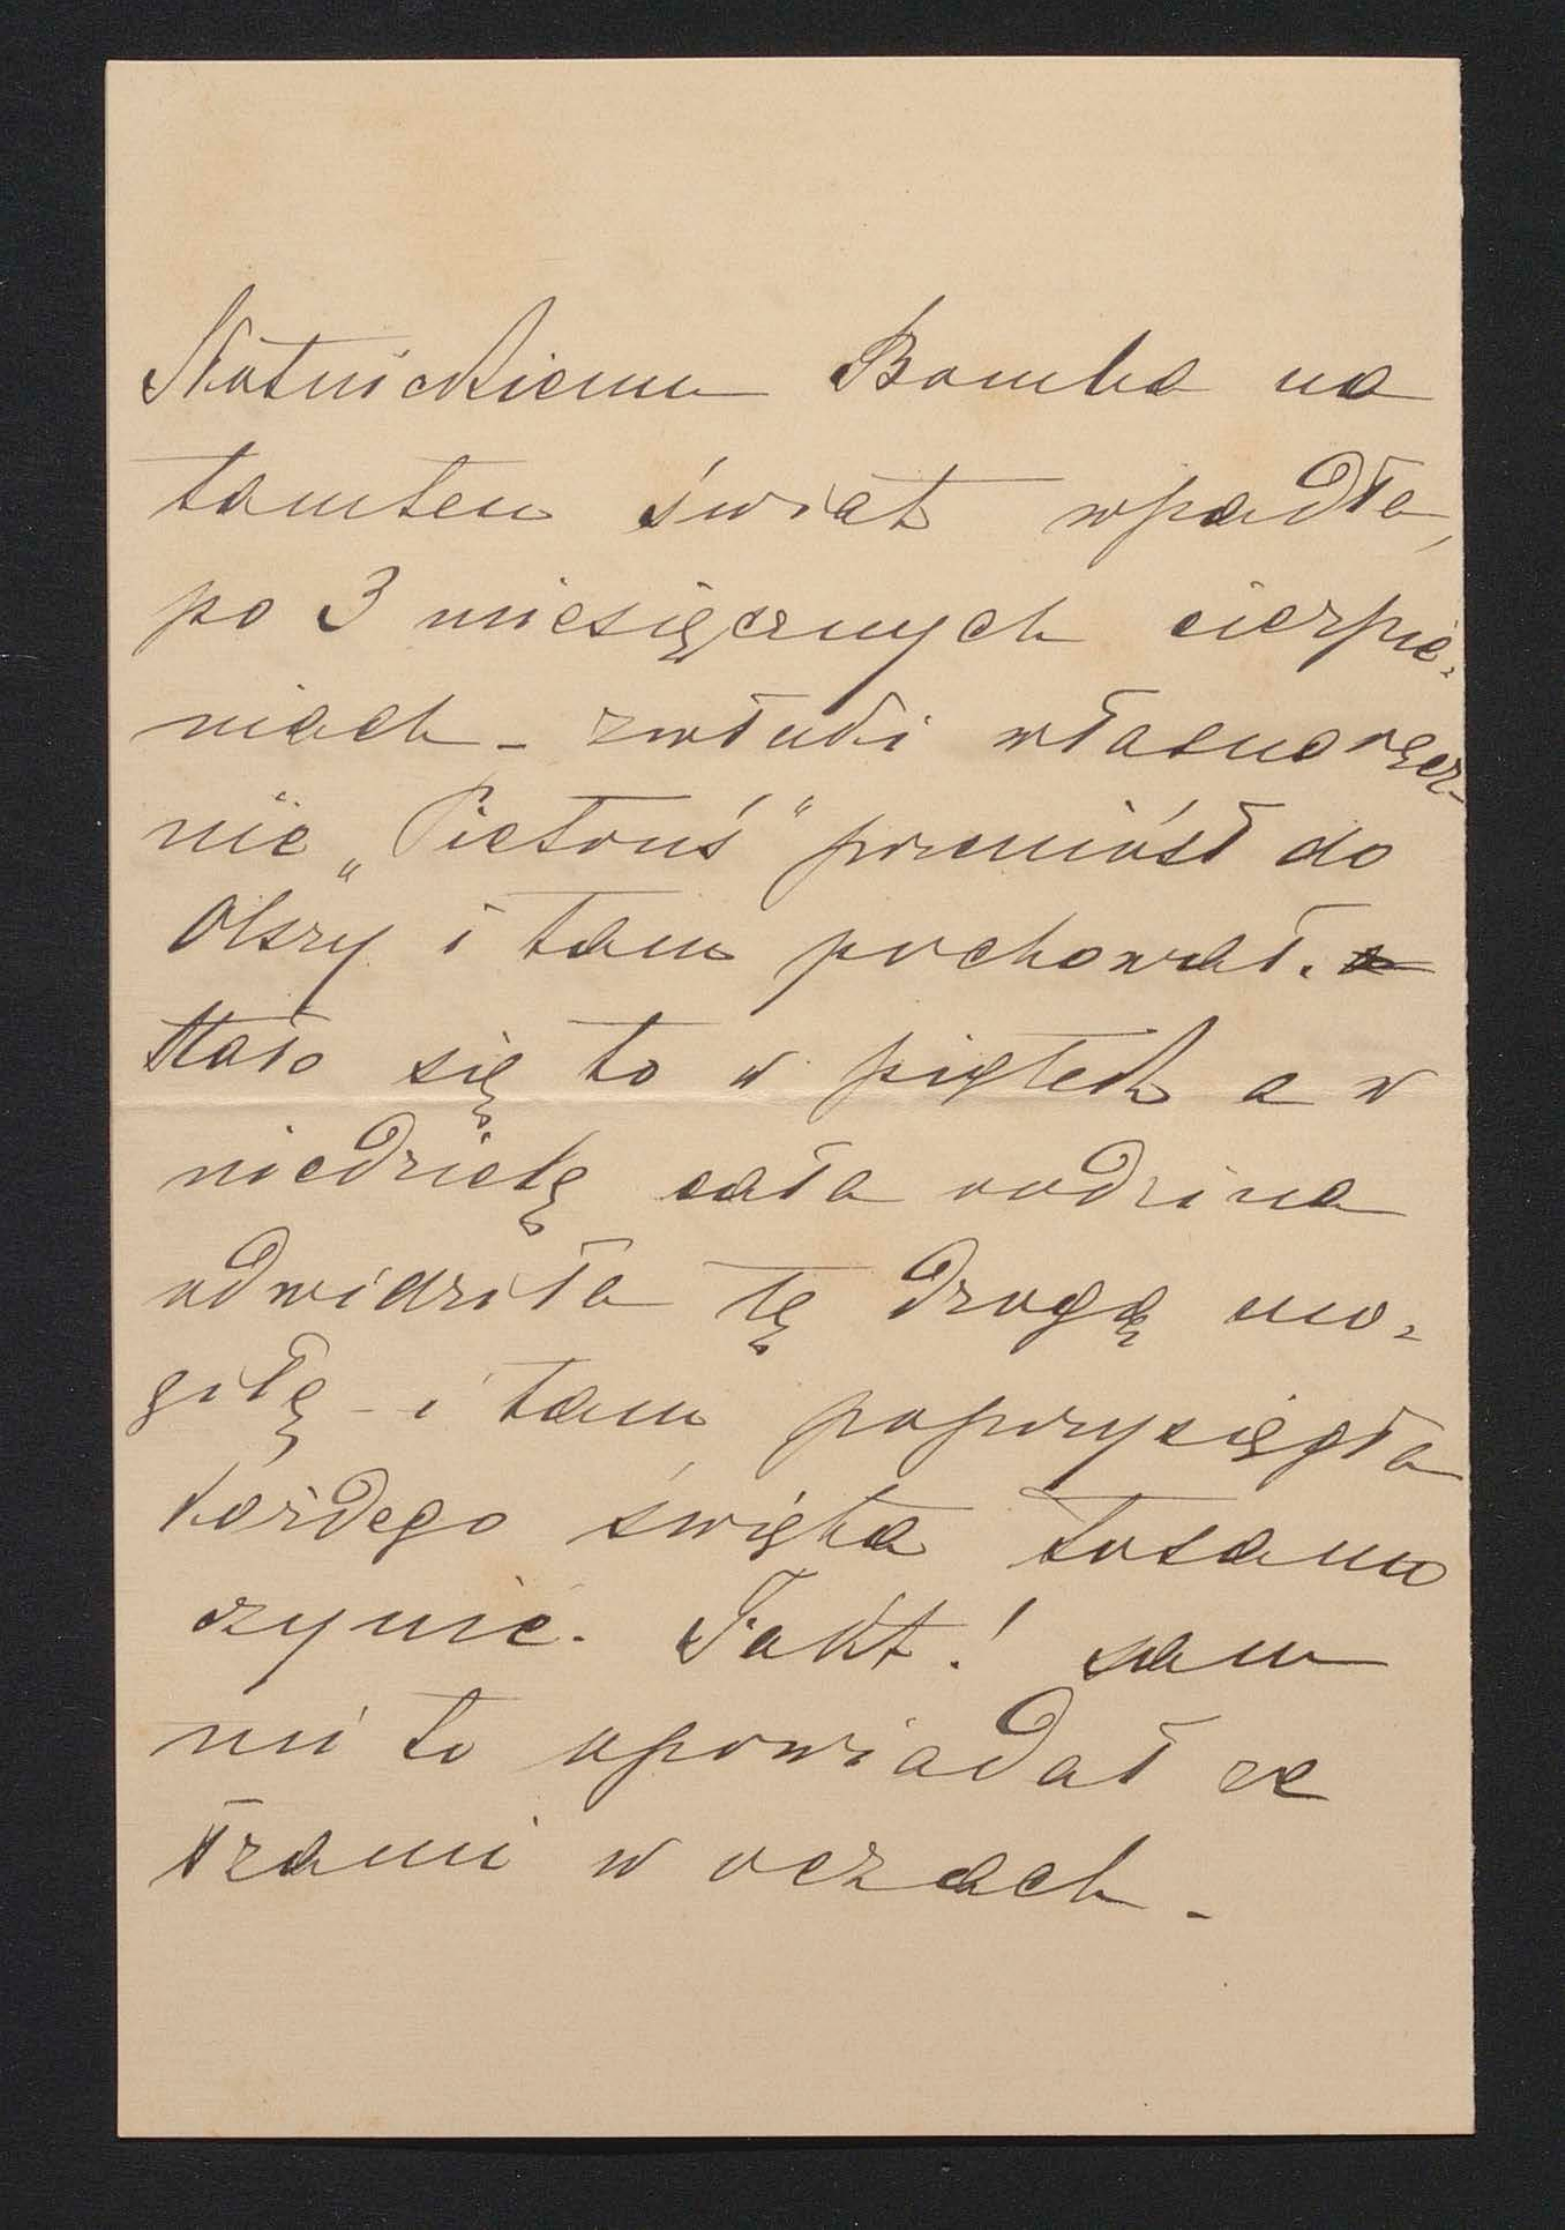 Skotnickiemu Bomba na
tamten świat wpadła,
po 3 miesięcznych cierpie-
niach - zwłoki własnoręcz-
nie „Pietruś" przeniósł do
Olszy i tam pochował.
Stało się to w piątek a w
niedzielę cała rodzina
odwidziła tę drogą mo-
giłę - i tam poprzysięgła
każdego święta tosamo
czynić. Fakt! sam
mi to opowiadał ze
łzami w oczach -